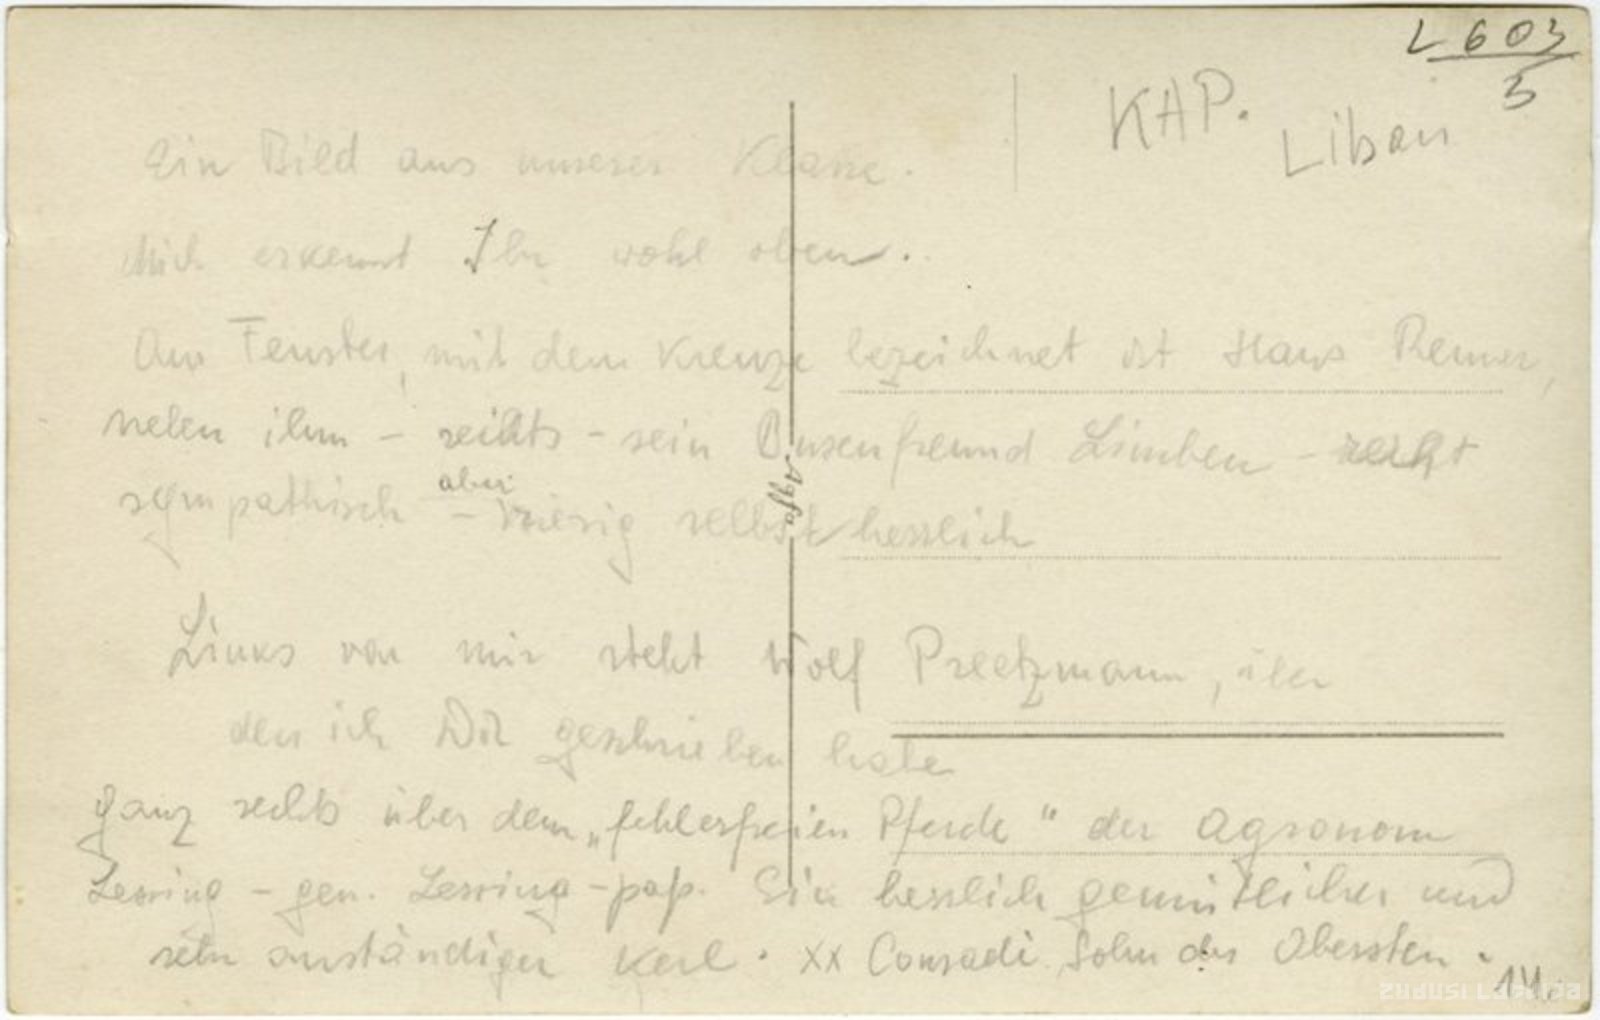 L 603
5
KAP.
Libau
Ein Bild aus unserer Klasse.
Mich erkennt Ihr wohl oben.
Am Fenster, mit dem Kreuze bezeichnet ist Hans Remer,
neben ihm - rechts - sein Busenfreund Limben - recht
sympathisch - aber riesig selbstherrlich
Agfa
Links von mir steht Wolf Preetzmann, über
den ich Dir geschrieben habe
ganz rechts über dem "fehlerfreien Pferde" der Agronom
Lessing - gen. Lessing-pap. Ein herrlich gemütlicher und
sehr anständiger Kerl. XX Conradi Sohn des Obersten.
14.
zudusi Latvija